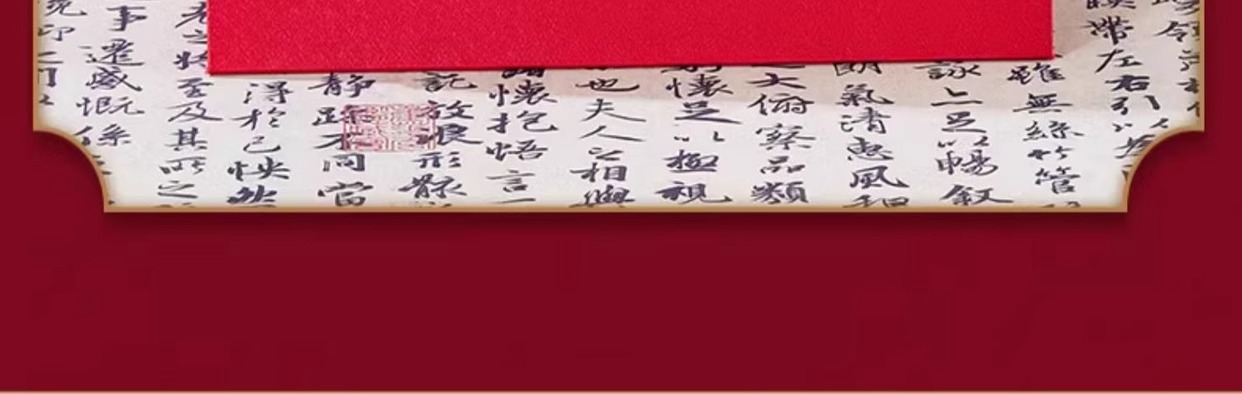 帶左右引以為
雖無絲竹管
詠亦足以暢叙
朗氣清惠風和
大俯察品類
懷足以極視
也夫人之相與
諸懷抱悟言一
託放浪形骸
静躁不同當
得於己快然
老之將至及其所之
事遷感慨係
仰之間